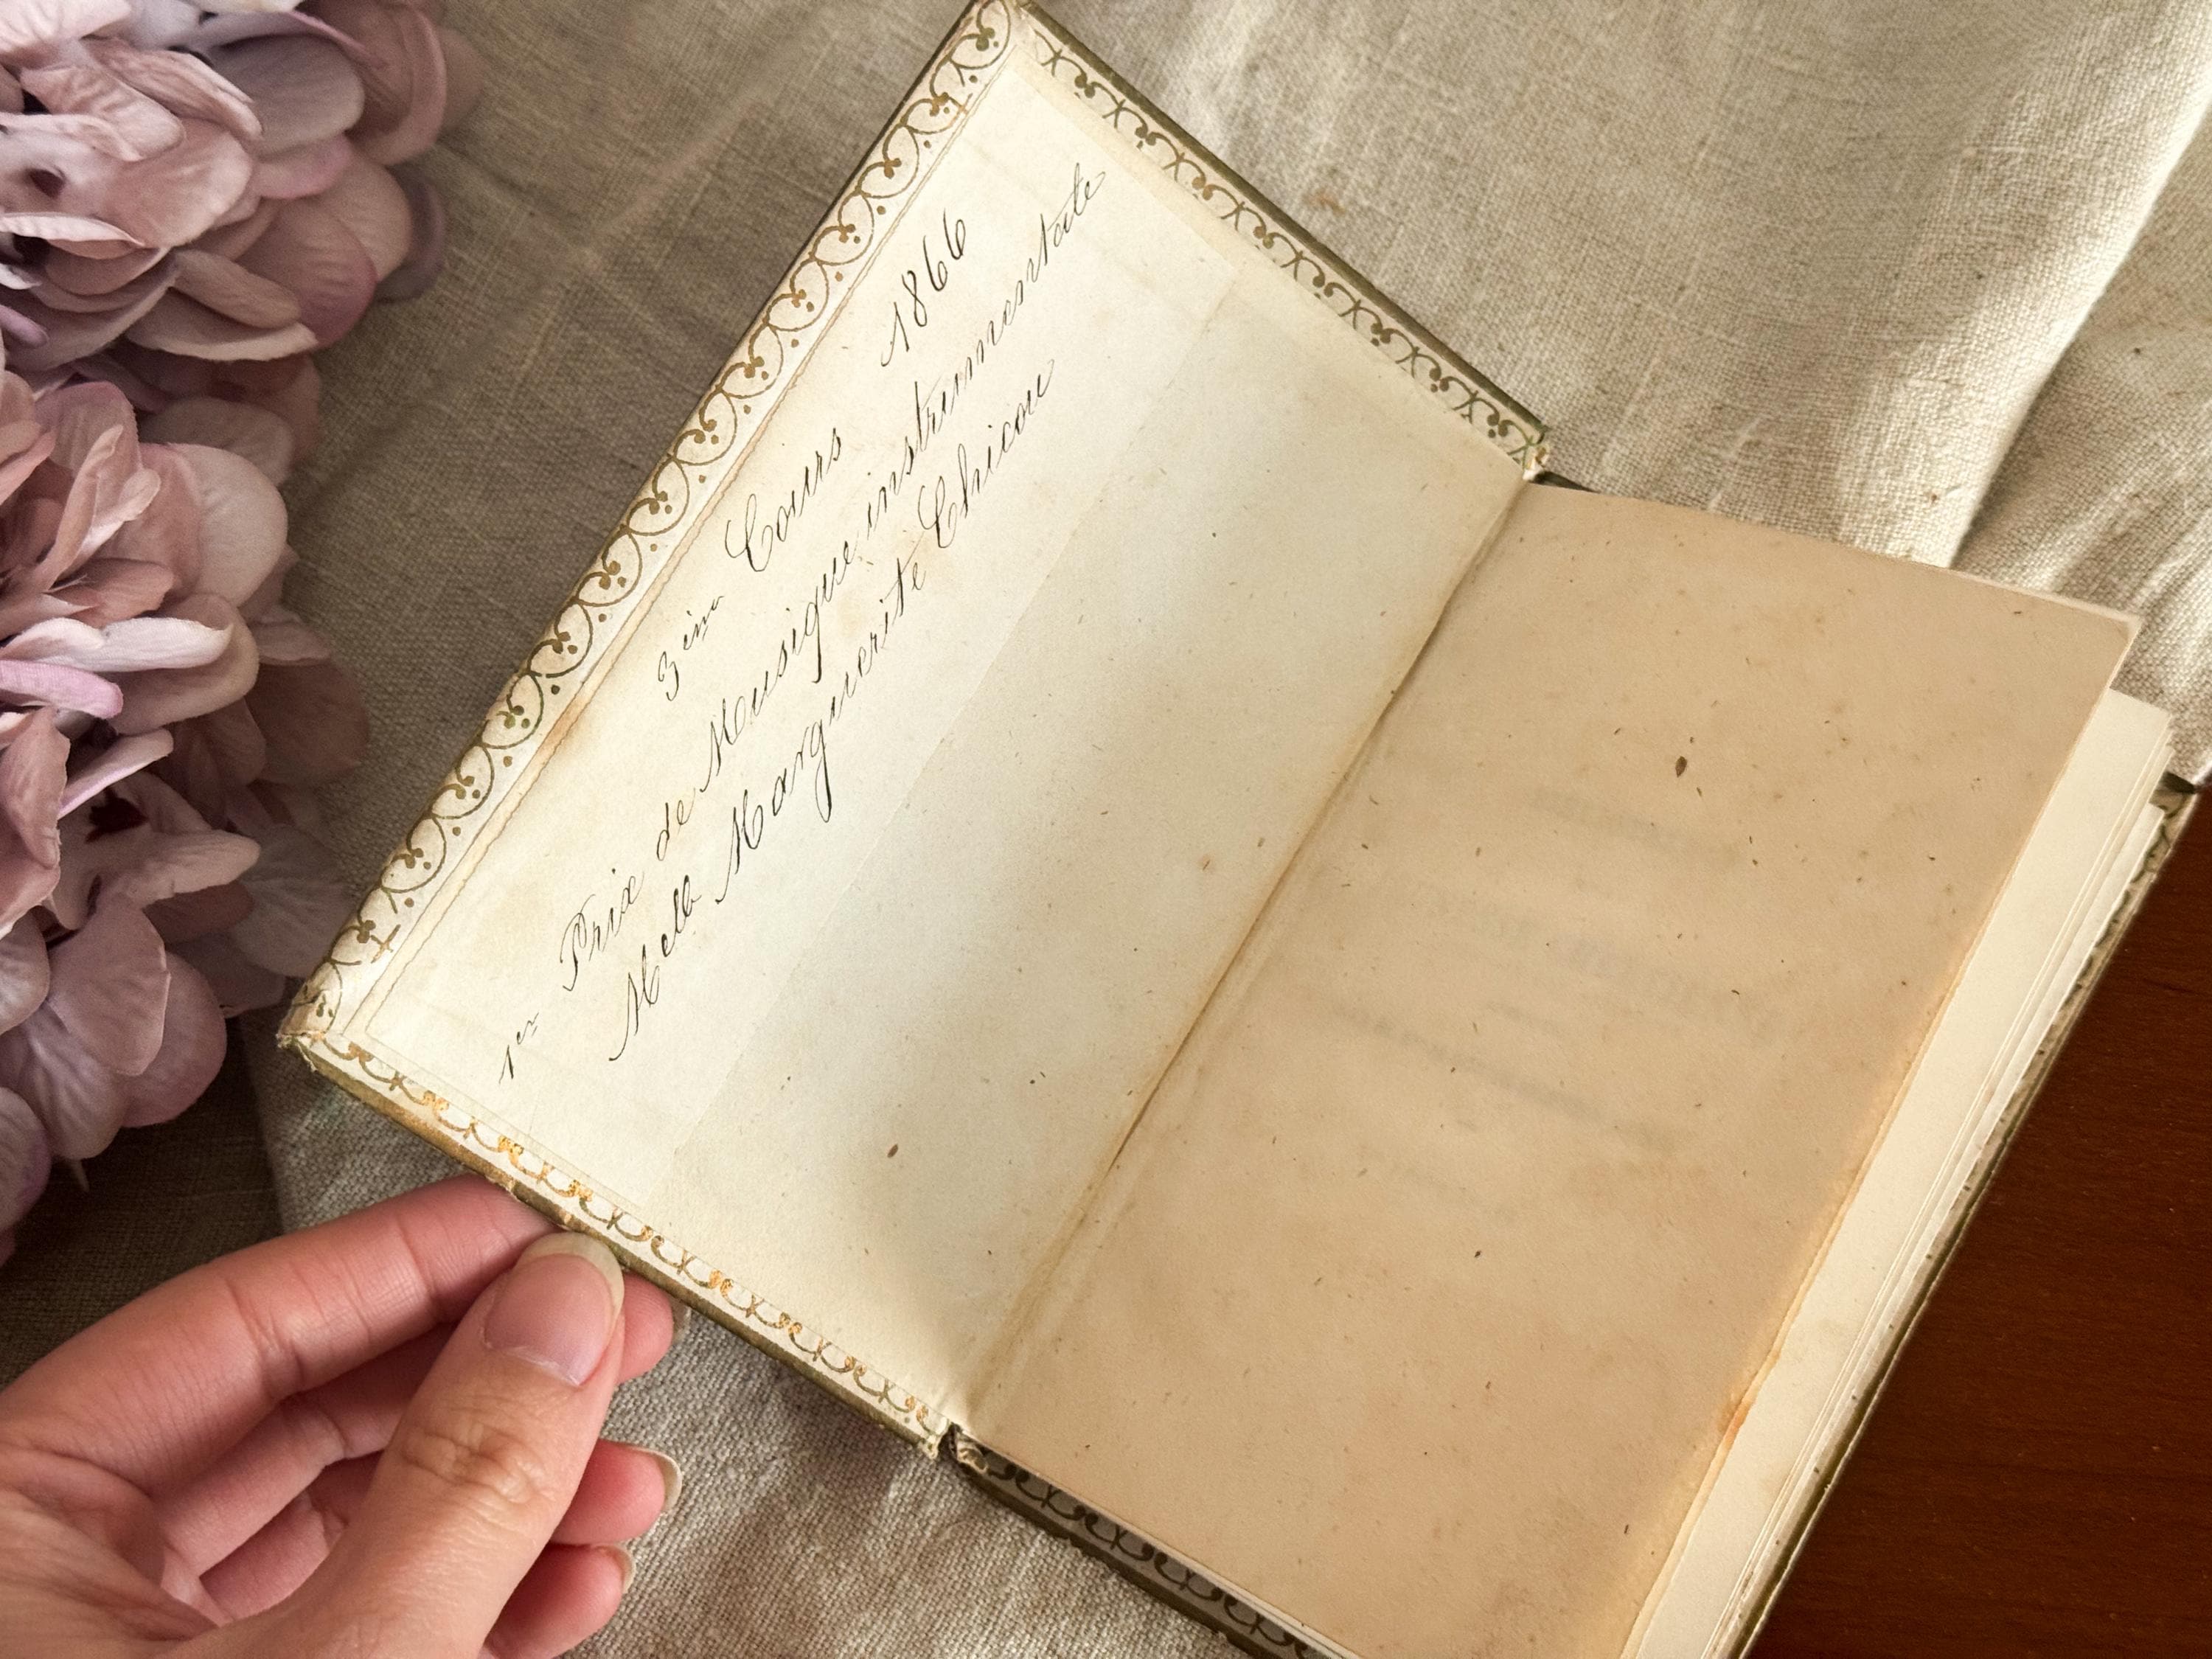 3ème Cours 1866
1er Prix de Musique instrumentale
Melle Marguerite Chicou